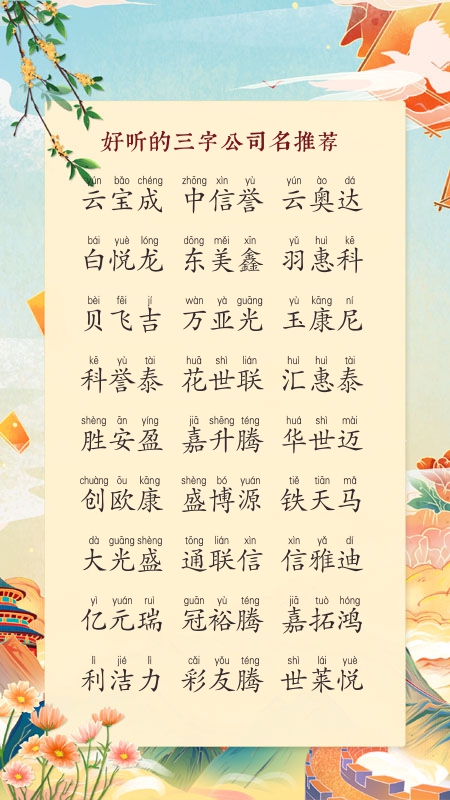 好听的三字公司名推荐
yún bǎo chéng zhōng xìn yù yún ào dá
云宝成 中信誉 云奥达
bái yuè lóng dōng měi xīn yǔ huì kē
白悦龙 东美鑫 羽惠科
bèi fēi jí wàn yà guāng yù kāng ní
贝飞吉 万亚光 玉康尼
kē yù tài huā shì lián huì huì tài
科誉泰 花世联 汇惠泰
shèng ān yíng jiā shēng téng huá shì mài
胜安盈 嘉升腾 华世迈
chuàng ōu kāng shèng bó yuán tiě tiān mǎ
创欧康 盛博源 铁天马
dà guāng shèng tōng lián xìn xìn yǎ dí
大光盛 通联信 信雅迪
yì yuán ruì guān yù téng jiā tuò hóng
亿元瑞 冠裕腾 嘉拓鸿
lì jié lì cǎi yǒu téng shì lái yuè
利洁力 彩友腾 世莱悦